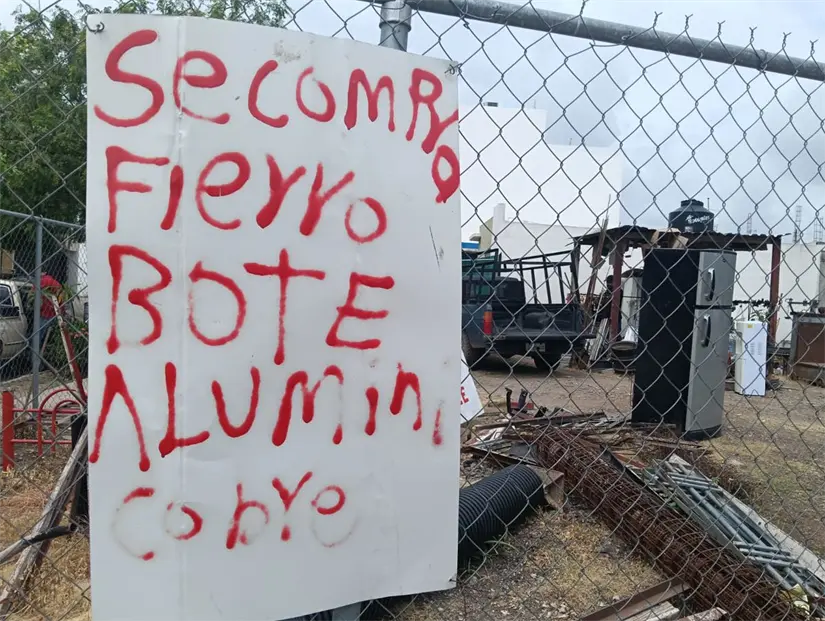 SecomPRO
Fierro
BOTE
ALUMini
cobre